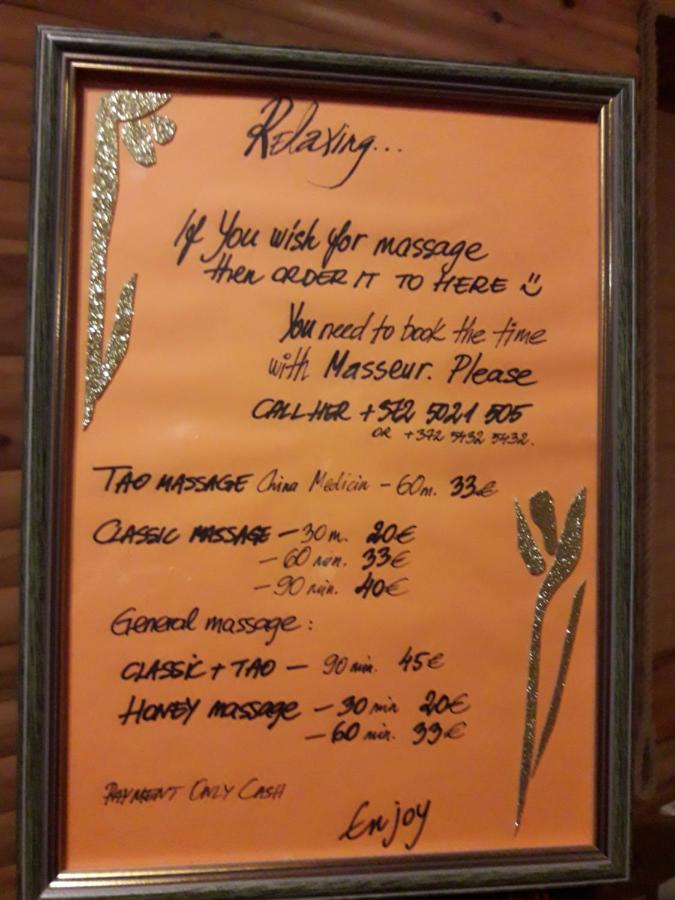 Relaxing...
If You wish for massage
then ORDER IT TO HERE
You need to book the time
with Masseur. Please
CALL HER +372 5021 505
OR +372 5432 5432.
TAO MASSAGE China Medicin - 60m. 33€
CLASSIC MASSAGE - 30 m. 20€
- 60 min. 33€
- 90 min. 40€
General massage:
CLASSIC + TAO - 90 min. 45€
HONEY massage - 30 min 20€
- 60 min. 33€
PAYMENT ONLY CASH
Enjoy